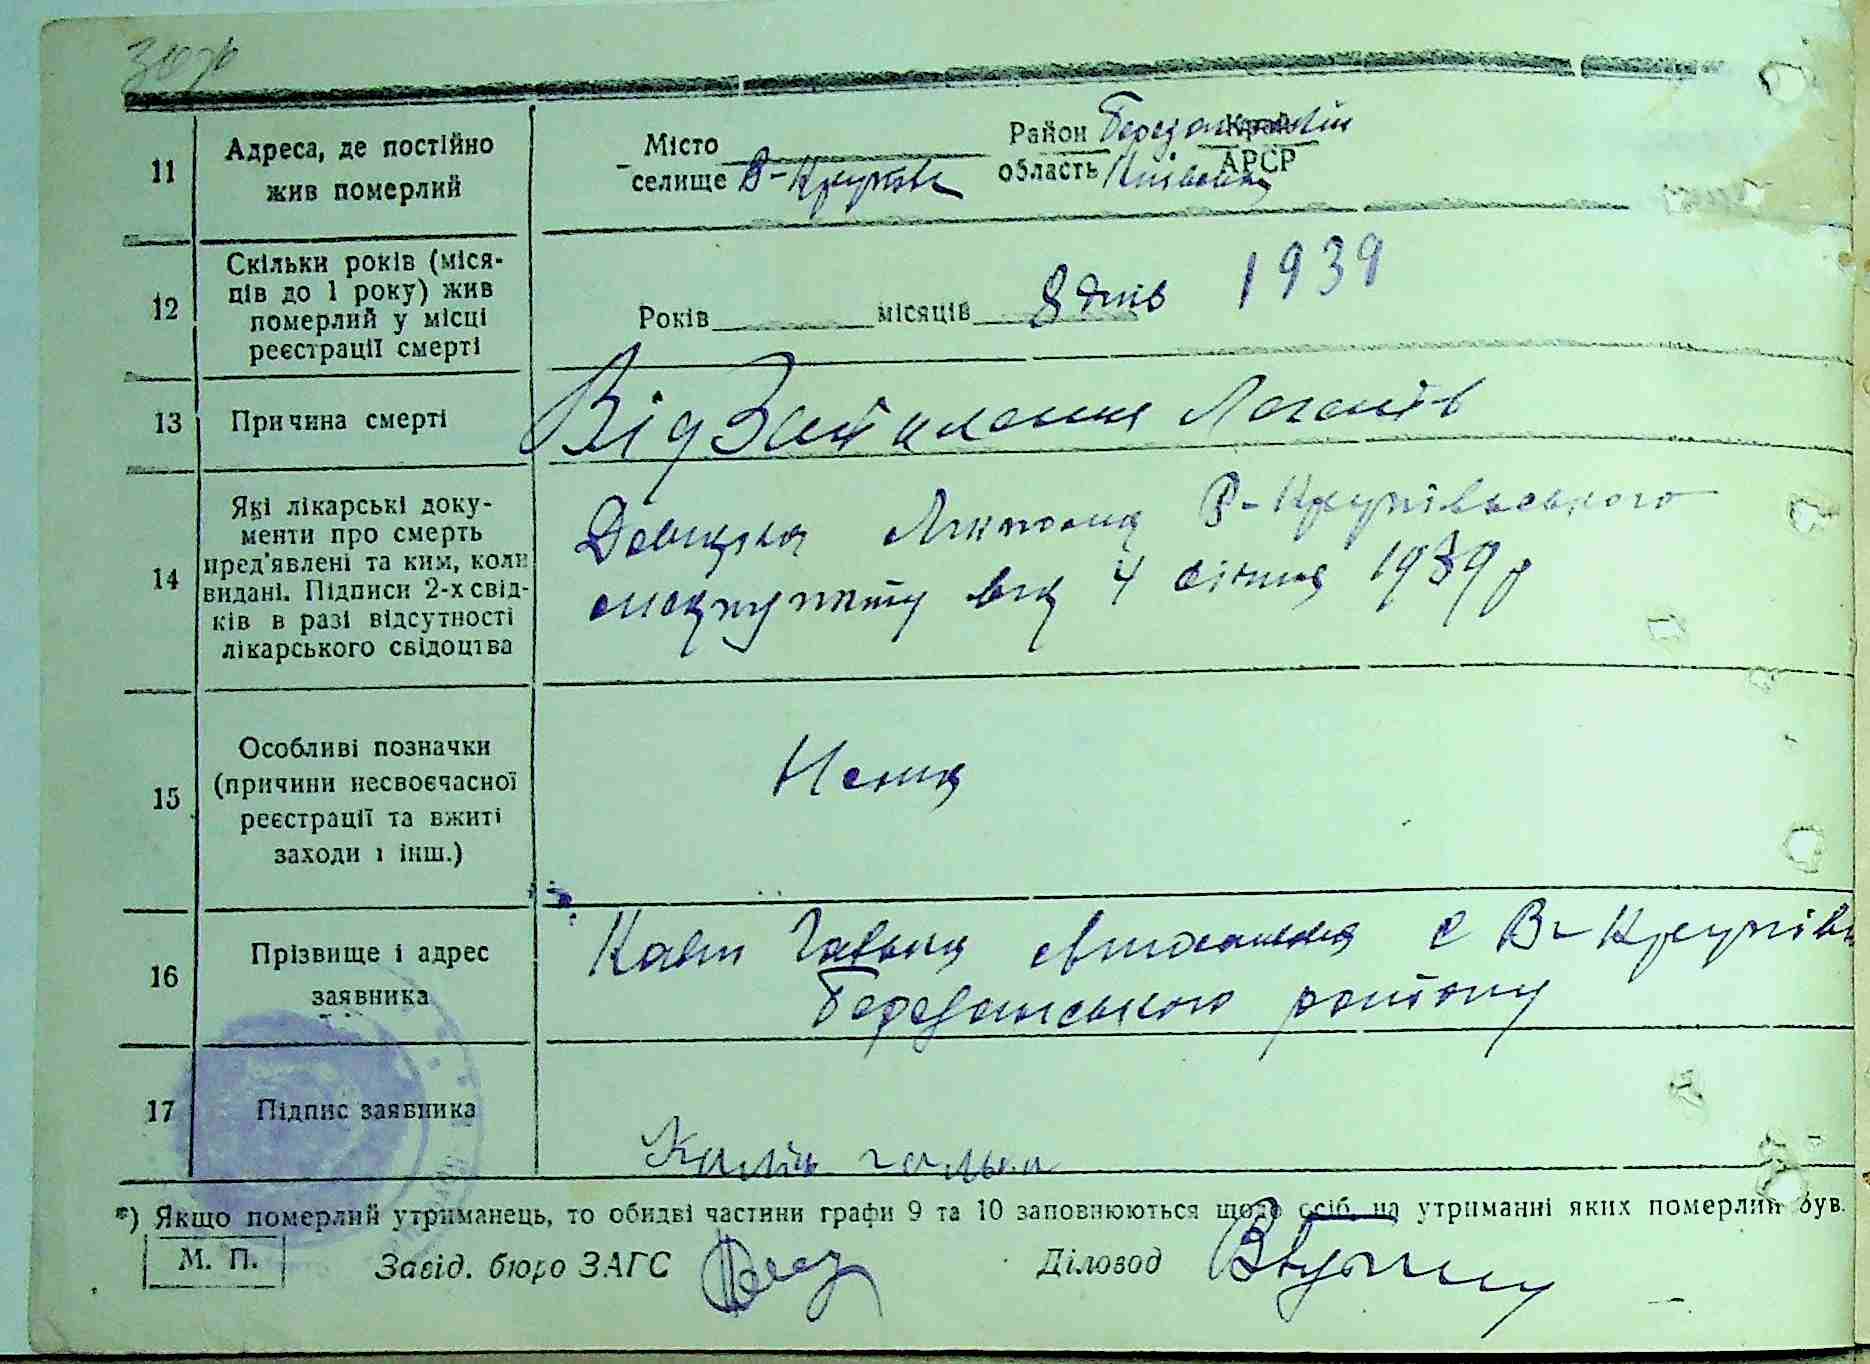 11
Адреса, де постійно
жив померлий
Місто
селище В-Крупіль
Район Березанський
область Київська
Край
АРСР
12
Скільки років (міся-
ців до 1 року) жив
померлий у місці
реєстрації смерті
Років місяців 8 днів 1939
13
Причина смерті
Від Запалення Легенів
14
Які лікарські доку-
менти про смерть
пред'явлені та ким, коли
видані. Підписи 2-х свід-
ків в разі відсутності
лікарського свідоцтва
Довідка В-Крупільського
медпункту від 4 січня 1939 р
15
Особливі позначки
(причини несвоєчасної
реєстрації та вжиті
заходи і інш.)
Нема
16
Прізвище і адрес
заявника
Галька с В-Крупіль
Березанського району
17
Підпис заявника
галька
*) Якщо померлий утриманець, то обидві частини графи 9 та 10 заповнюються щодо осіб, на утриманні яких померлий був.
М. П. Завід. бюро ЗАГС Діловод